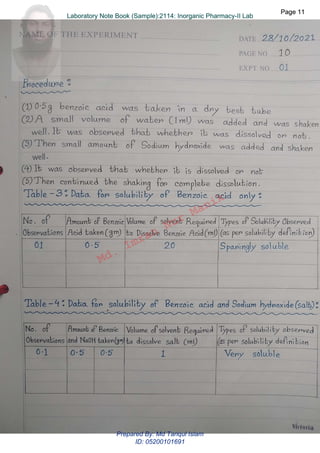 Page 11
Laboratory Note Book (Sample):2114: Inorganic Pharmacy-II Lab
NAME OF THE EXPERIMENT
DATE 28/10/2021
PAGE NO 10
EXPT NO 01
Procedure :
(1) 0.5g benzoic acid was taken in a dry test tube
(2) A small volume of water (1ml) was added and was shaken
well. It was observed that whether it was dissolved or not.
(3) Then small amount of Sodium hydroxide was added and shaken
well.
(4) It was observed that whether it is dissolved or not
(5) Then continued the shaking for complete dissolution.
Table - 3: Data for solubility of Benzoic acid only :
No. of Observations | Amount of Benzoic Acid taken (gm) | Volume of solvent Required to Dissolve Benzoic Acid (ml) | Types of Solubility Observed (as per solubility definition)
01 | 0.5 | 20 | Sparingly soluble
Table - 4 : Data for solubility of Benzoic acid and Sodium hydroxide (salt):
No. of Observations | Amount of Benzoic and NaOH taken (gm) | Volume of solvent Required to dissolve salt (ml) | Types of solubility observed (as per solubility definition
0.1 | 0.5 | 0.5 | 1 | Very soluble
Victoria
Prepared By: Md Tariqul Islam
ID: 05200101691